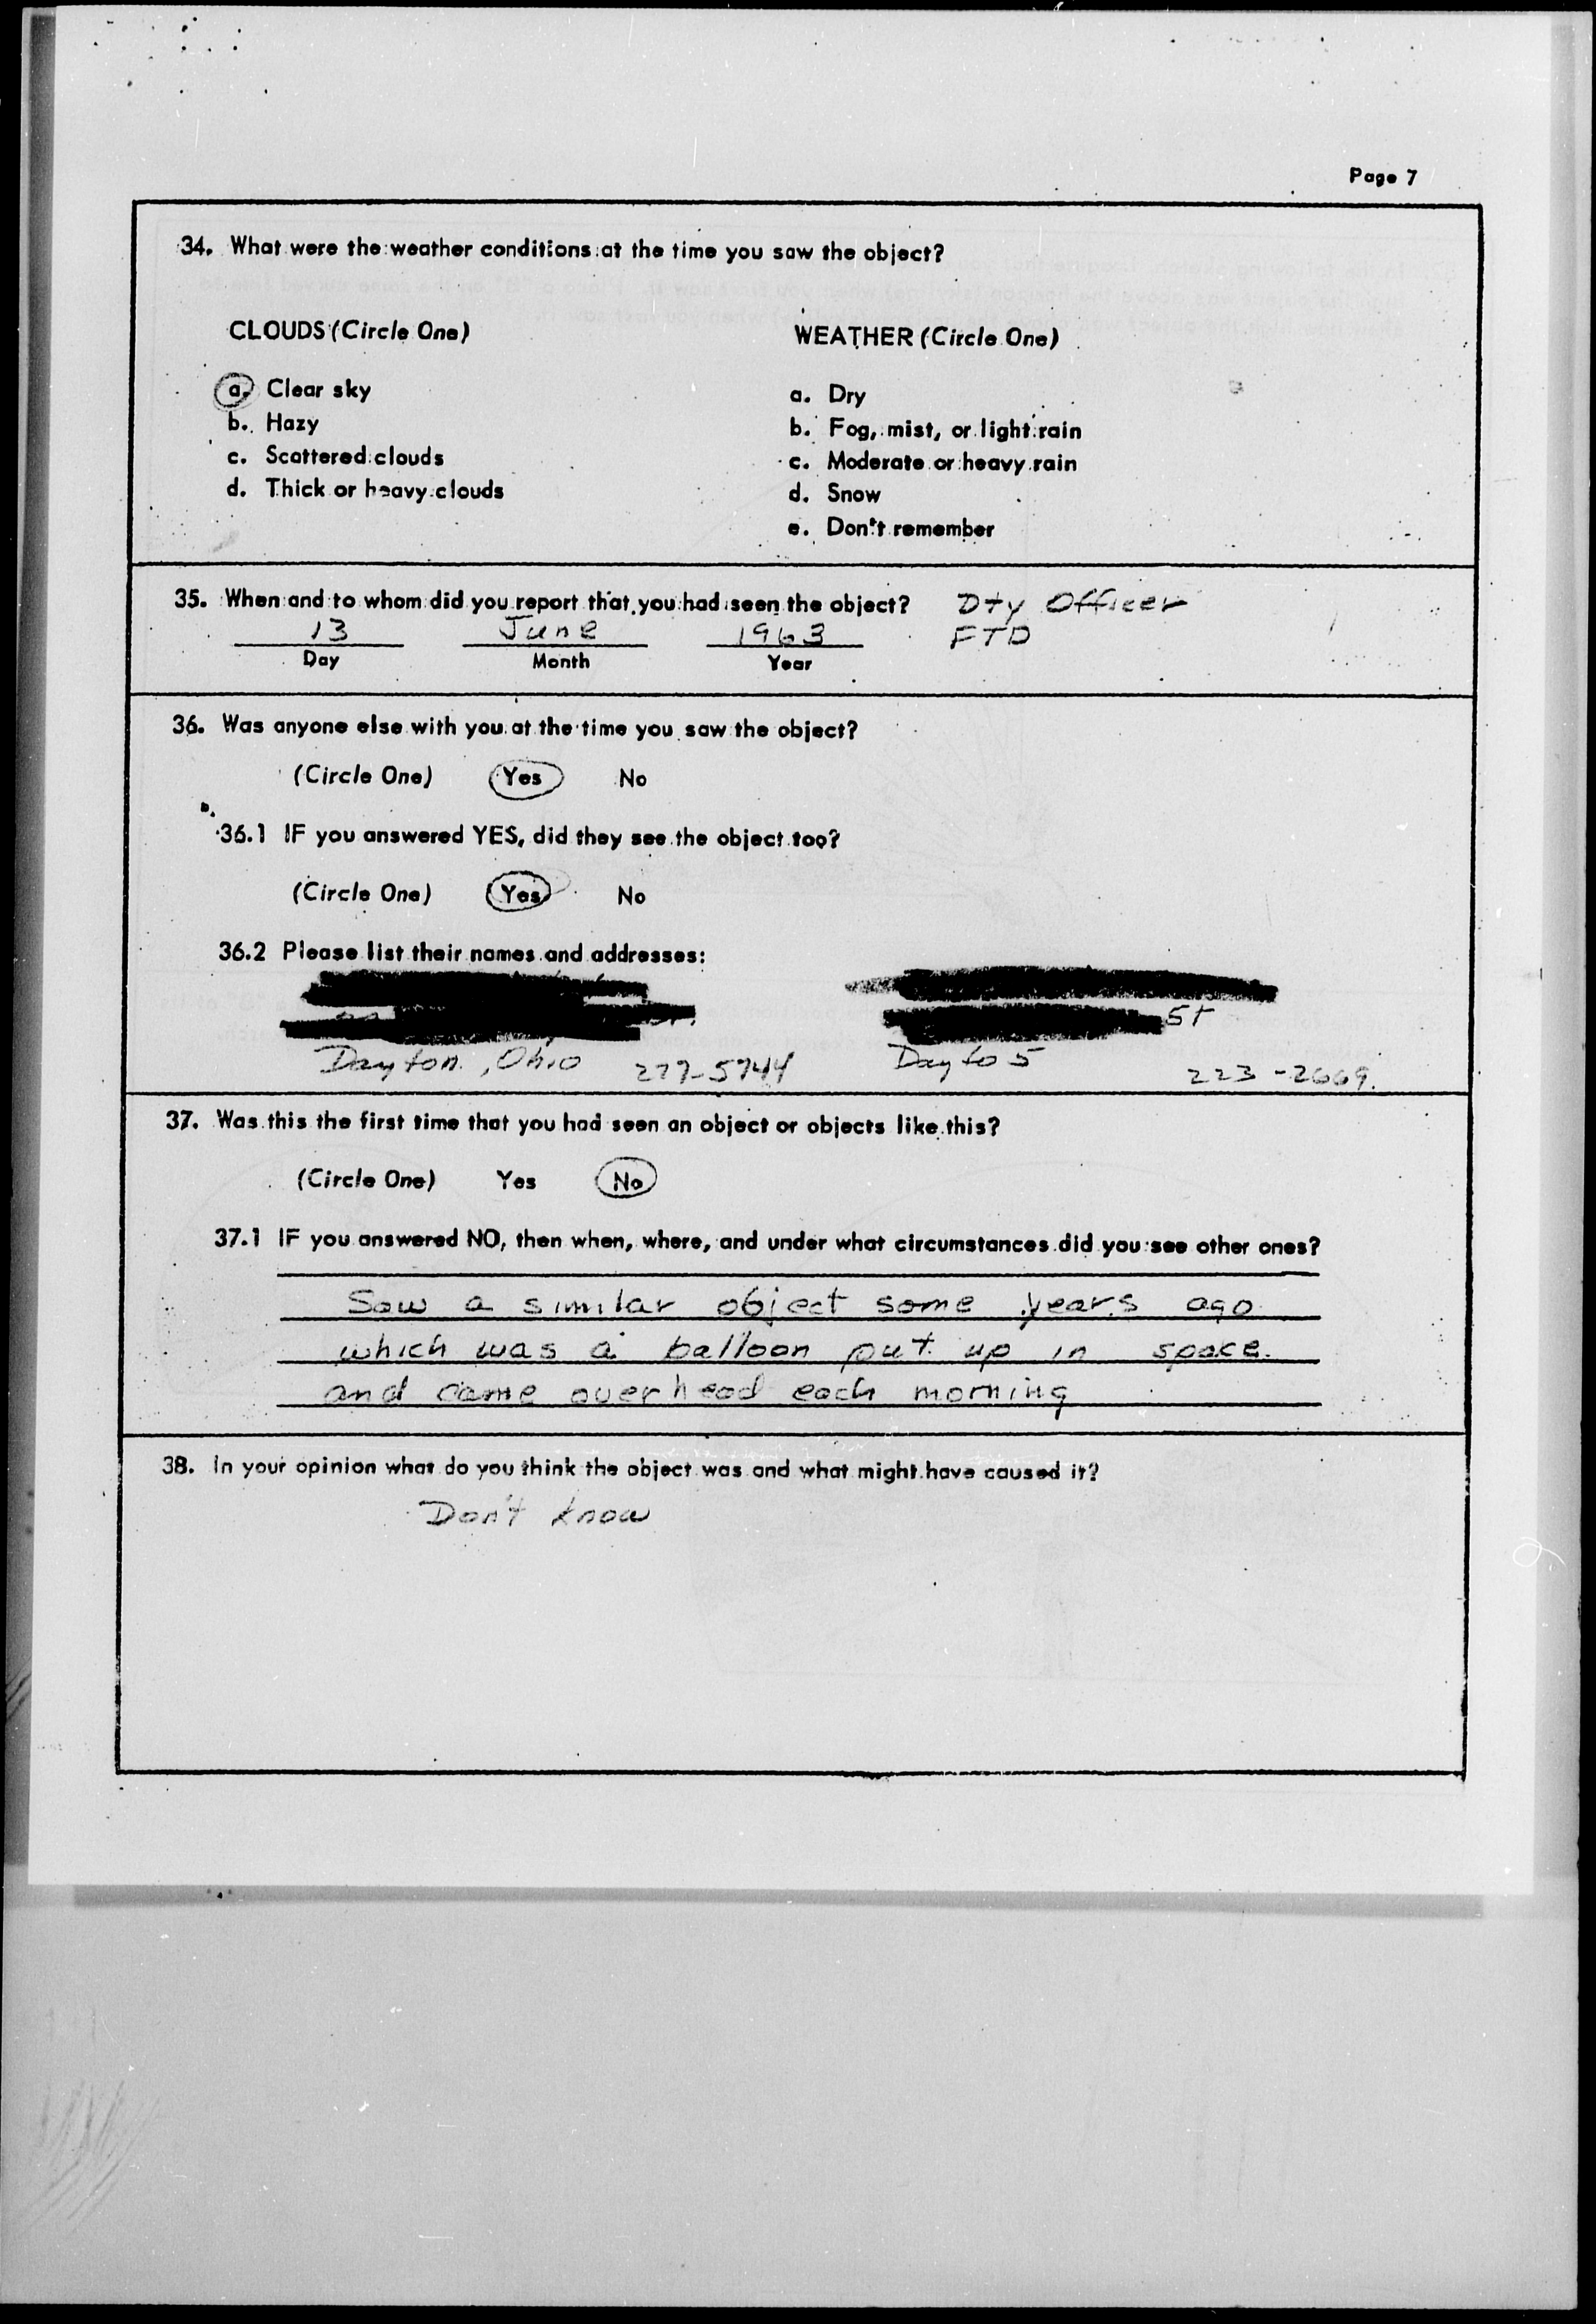 Page 7
34. What were the weather conditions at the time you saw the object?
CLOUDS (Circle One)
a. Clear sky
b. Hazy
c. Scattered clouds
d. Thick or heavy clouds
WEATHER (Circle One)
a. Dry
b. Fog, mist, or light rain
c. Moderate or heavy rain
d. Snow
e. Don't remember
35. When and to whom did you report that you had seen the object? Dty Officer
13 June 1963 FTD
Day Month Year
36. Was anyone else with you at the time you saw the object?
(Circle One) Yes No
36.1 IF you answered YES, did they see the object too?
(Circle One) Yes No
36.2 Please list their names and addresses:
St
Dayton, Ohio 277-5744 Dayto 5 223-2669
37. Was this the first time that you had seen an object or objects like this?
(Circle One) Yes No
37.1 IF you answered NO, then when, where, and under what circumstances did you see other ones?
Saw a similar object some years ago
which was a balloon put up in space
and came overhead each morning
38. In your opinion what do you think the object was and what might have caused it?
Don't know